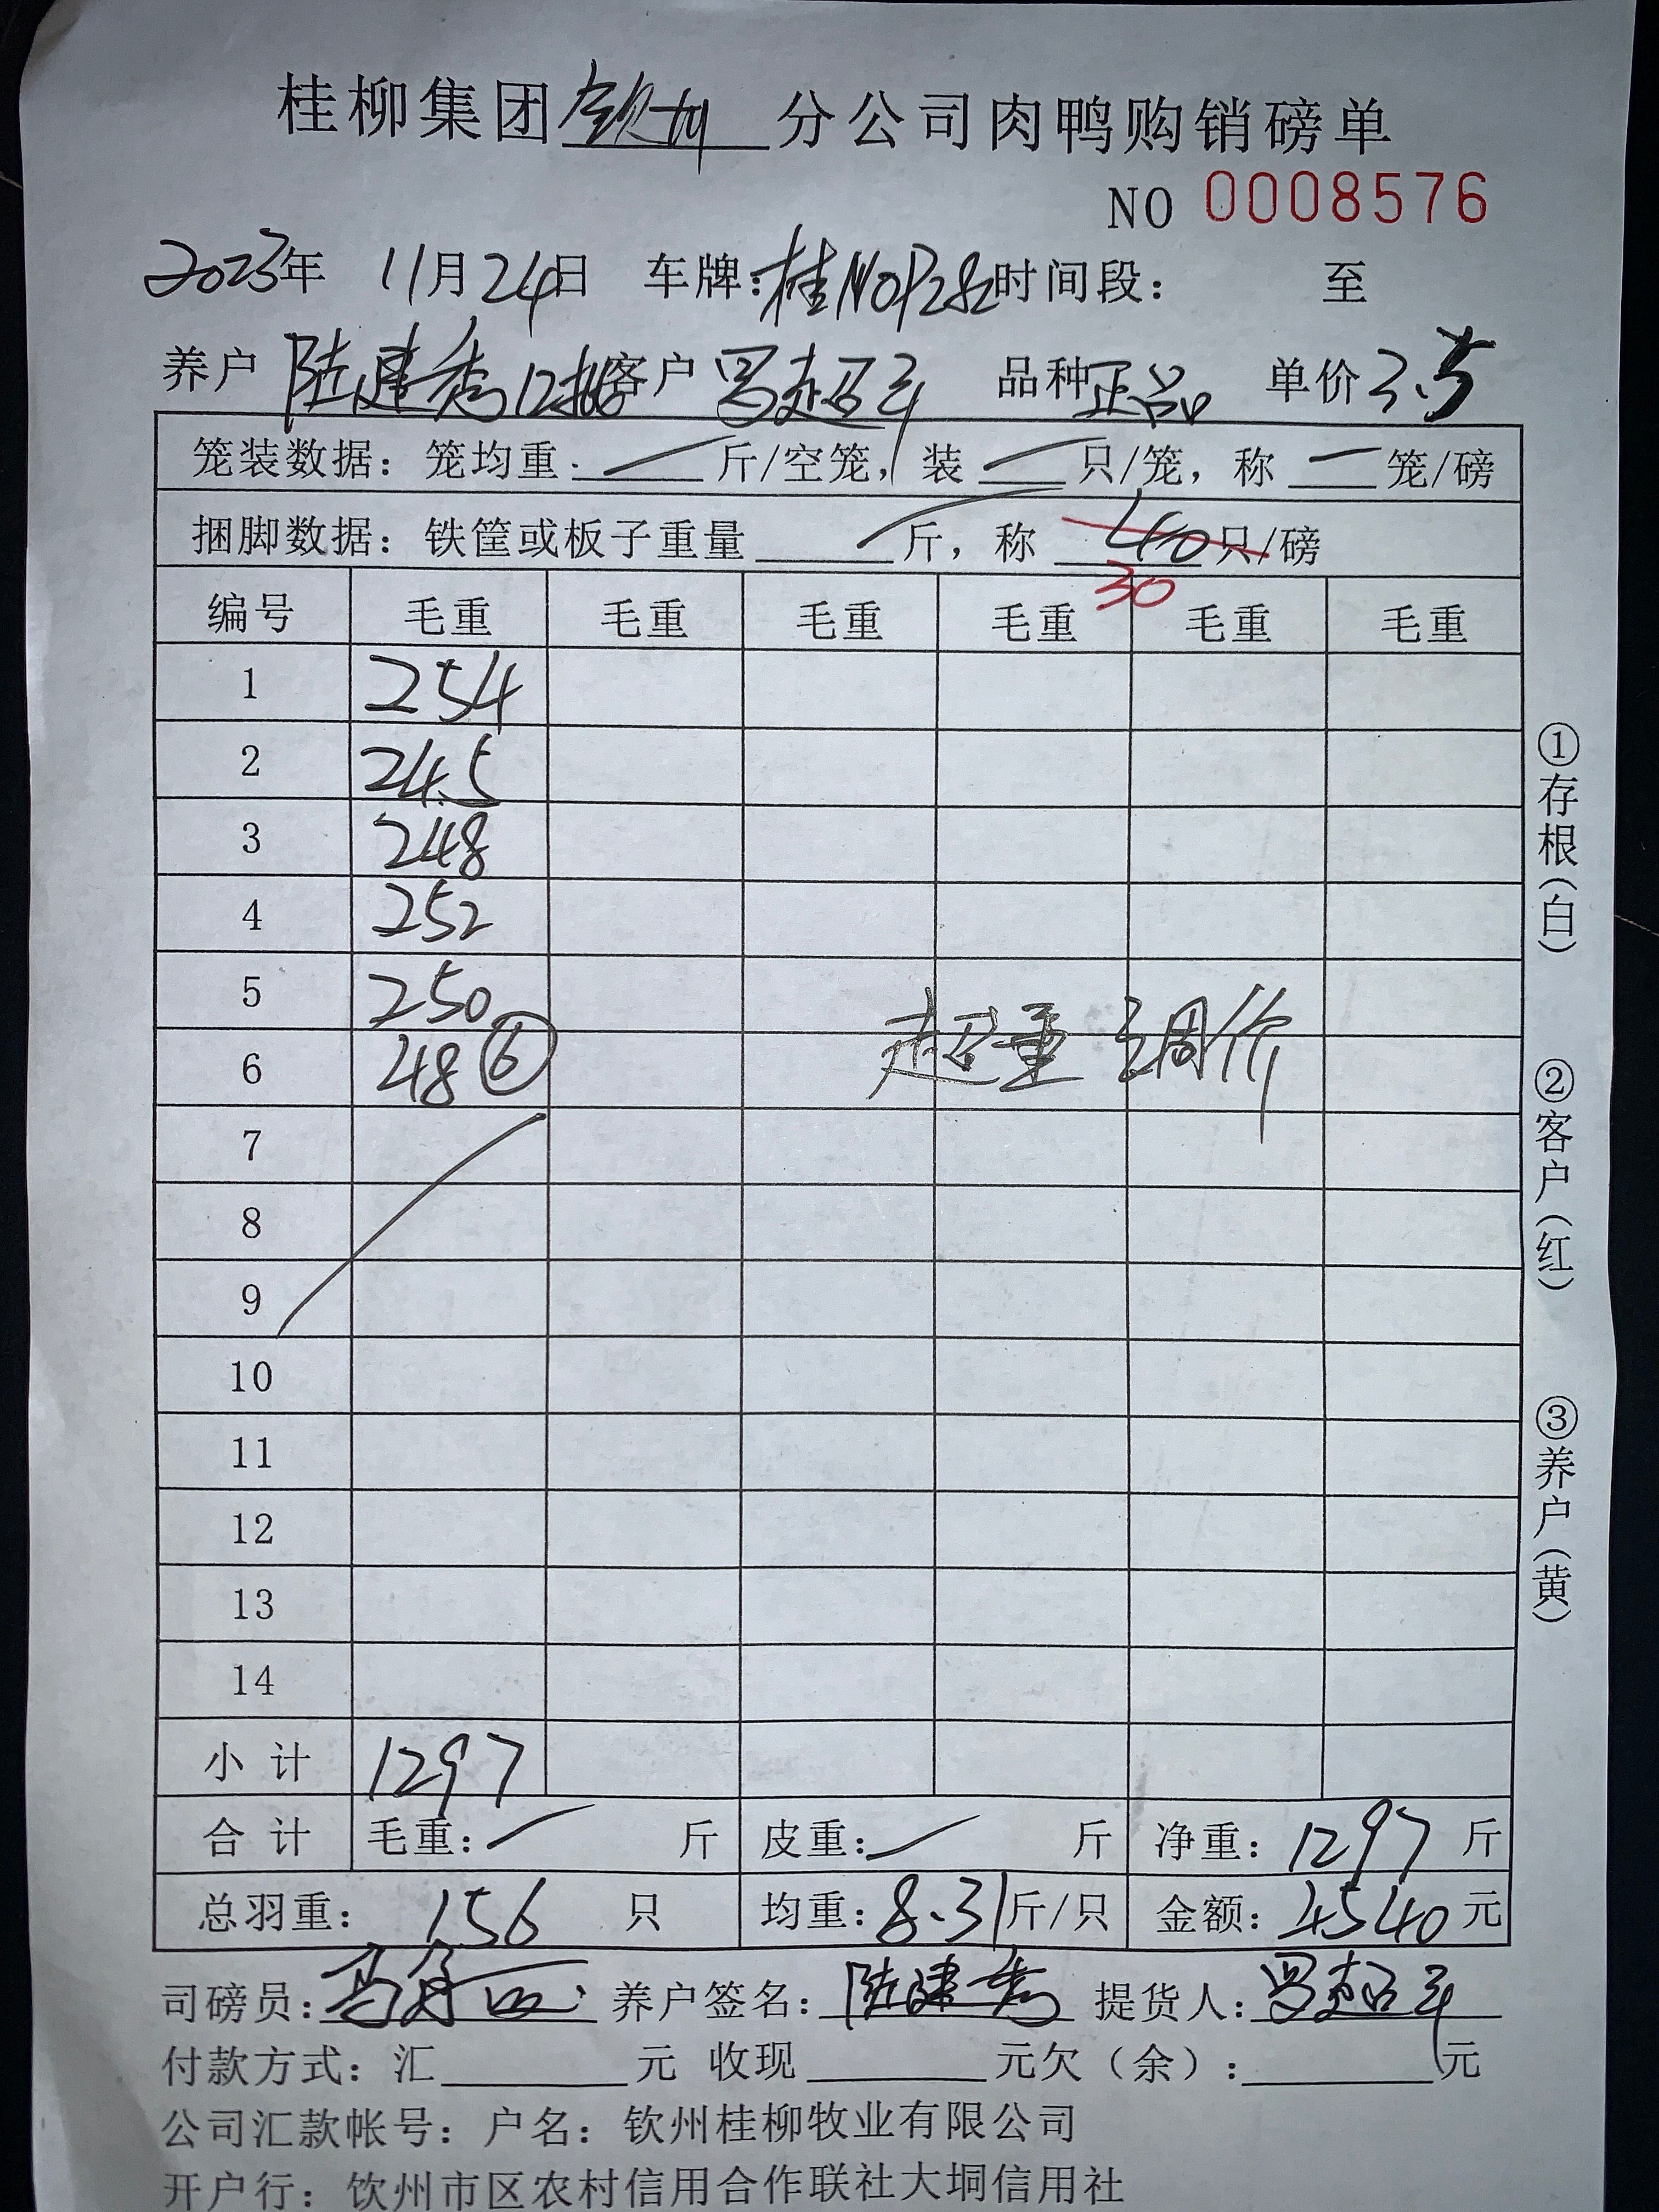 桂柳集团钦州分公司肉鸭购销磅单
NO 0008576
2023年 11月24日 车牌:桂N0P282时间段: 至
养户 陆建秀12批客户 罗超云 品种正品 单价3.5
笼装数据: 笼均重 斤/空笼, 装 只/笼, 称 笼/磅
捆脚数据: 铁筐或板子重量 斤, 称 40只/磅
30
编号 毛重 毛重 毛重 毛重 毛重 毛重
1 254
2 245
3 248
4 252
5 250
6 48⑥
超重 调价
7
8
9
10
11
12
13
14
小计 1297
合计 毛重: 斤 皮重: 斤 净重: 1297 斤
总羽重: 156 只 均重: 8.31斤/只 金额: 4540元
司磅员: 养户签名: 陆建秀 提货人: 罗超云
付款方式: 汇 元 收现 元欠(余): 元
公司汇款帐号: 户名: 钦州桂柳牧业有限公司
开户行: 钦州市区农村信用合作联社大垌信用社
①存根(白)
②客户(红)
③养户(黄)